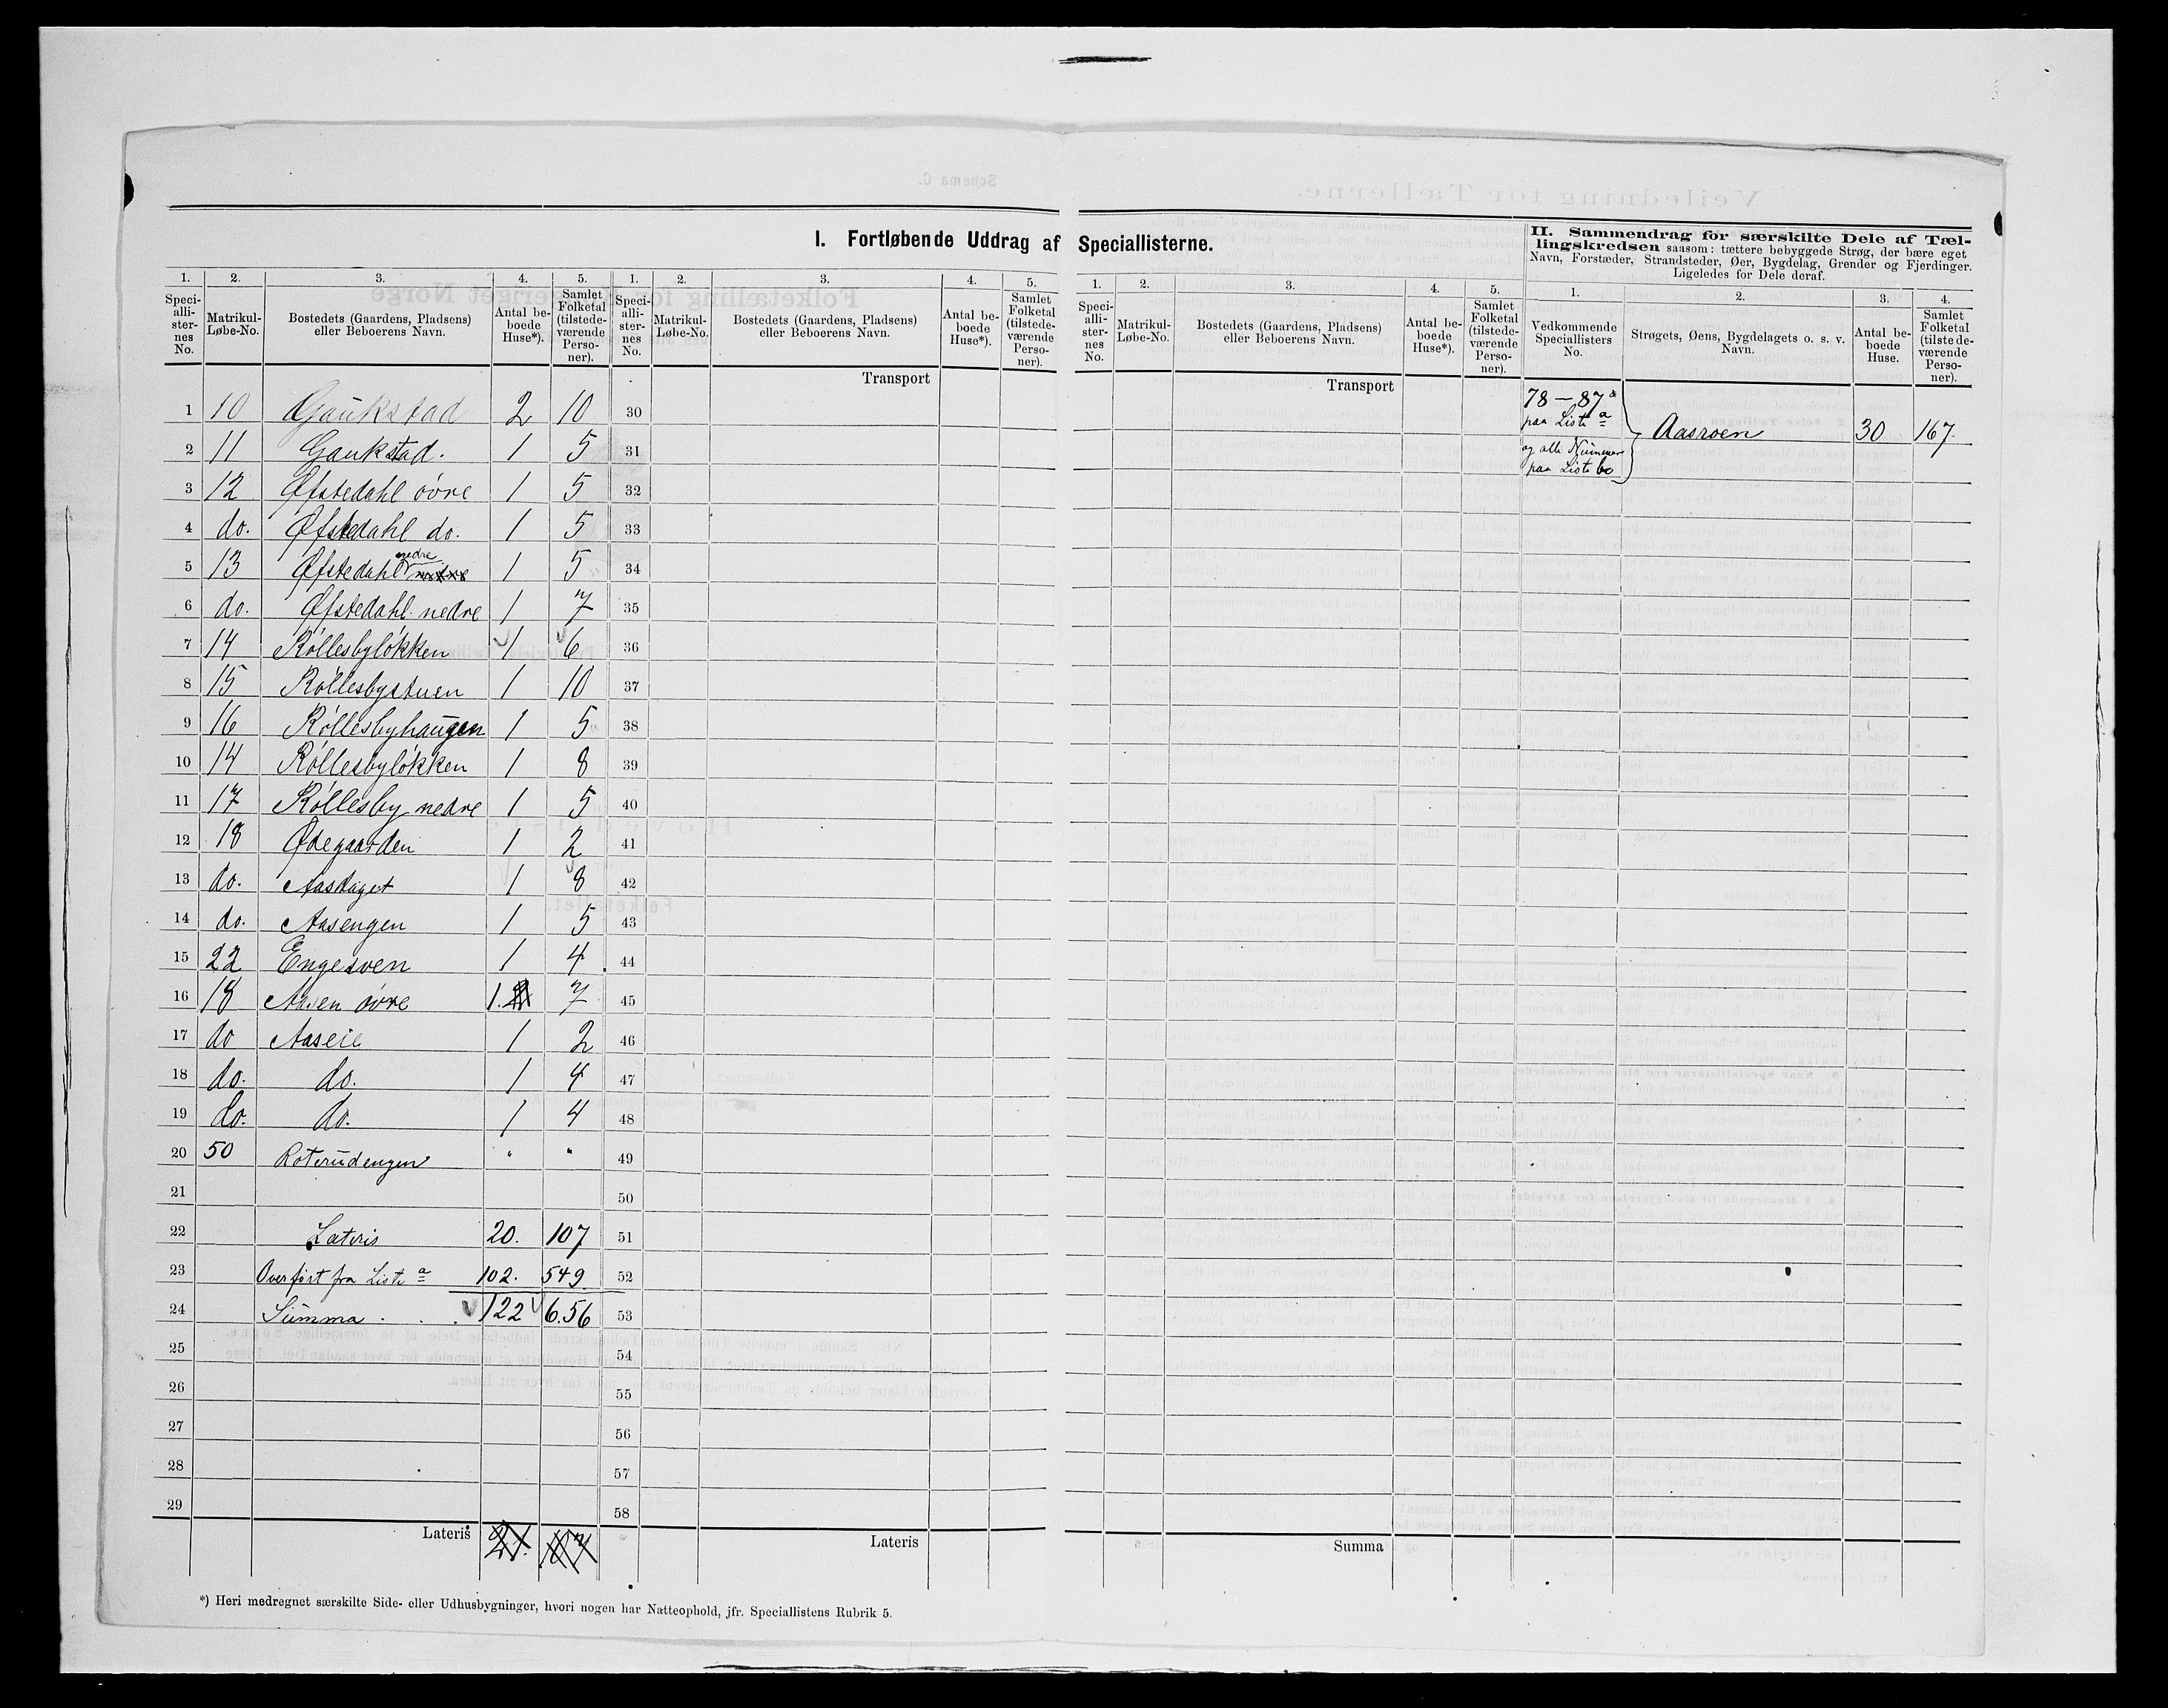 I. Fortløbende Uddrag af Speciallisterne.
II. Sammendrag for særskilte Dele af Tæl-
lingskredsen saasom: tættere bebyggede Strøg, der bære eget
Navn, Forstæder, Strandsteder, Øer, Bygdelag, Grender og Fjerdinger.
Ligeledes for Dele deraf.
1. 2. 3. 4. 5. 1. 2. 3. 4. 5. 1. 2. 3. 4. 5. 1. 2. 3. 4.
Speci-
alli-
ster-
nes
No.
Matrikul-
Løbe-No.
Bostedets (Gaardens, Pladsens)
eller Beboerens Navn.
Antal be-
boede
Huse*).
Samlet
Folketal
(tilstede-
værende
Perso-
ner).
Speci-
alli-
ster-
nes
No.
Matrikul-
Løbe-No.
Bostedets (Gaardens, Pladsens)
eller Beboerens Navn.
Antal be-
boede
Huse*).
Samlet
Folketal
(tilstede-
værende
Perso-
ner).
Speci-
alli-
ster-
nes
No.
Matrikul-
Løbe-No.
Bostedets (Gaardens, Pladsens)
eller Beboerens Navn.
Antal be-
boede
Huse*).
Samlet
Folketal
(tilstede-
værende
Perso-
ner).
Vedkommende
Speciallisters
No.
Strøgets, Øens, Bygdelagets o. s. v.
Navn.
Antal be-
boede
Huse.
Samlet
Folketal
(tilstede-
værende
Perso-
ner).
Transport Transport
78 — 87
paa Liste a
og alle Nummer
paa Liste b
Aasroen 30 167.
1 10 Gaukstad 2 10 30
2 11 Gaukstad. 1 5 31
3 12 Øfstedahl øvre 1 5 32
4 do. Øfstedahl do. 1 5 33
5 13 Øfstedahl nedre 1 5 34
6 do. Øfstedahl nedre 1 7 35
7 14 Røllesbyløkken 1 6 36
8 15 Røllesbystuen 1 10 37
9 16 Røllesbyhaugen 1 5 38
10 14 Røllesbyløkken 1 8 39
11 17 Røllesby nedre 1 5 40
12 18 Ødegaarden 1 2 41
13 do. Aastaget 1 8 42
14 do. Aasengen 1 5 43
15 22 Engesven 1 4 44
16 18 Aasen øvre 1. 7 45
17 do Aaseie 1 2 46
18 do. do. 1 4 47
19 do. do. 1 4 48
20 50 Roterudengen " " 49
21 50
22 Lateris 20. 107 51
23 Overført fra Liste a 102. 549 52
24 Summa . . . 122 6.56 53
25 54
26 55
27 56
28 57
29 58
Lateris 21. Lateris Summa
*) Heri medregnet særskilte Side- eller Udhusbygninger, hvori nogen har Natteophold, jfr. Speciallistens Rubrik 5.